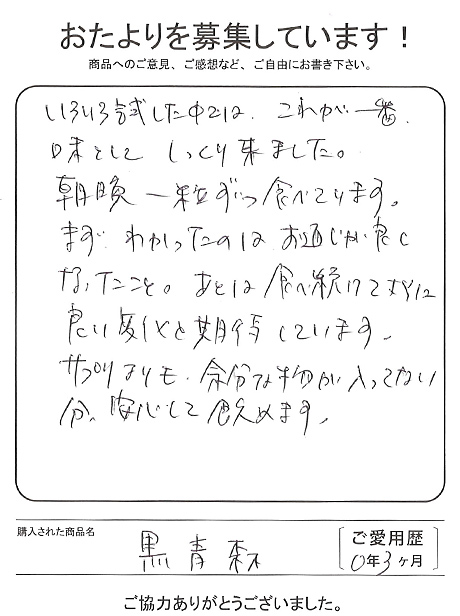 おたよりを募集しています！
商品へのご意見、ご感想など、ご自由にお書き下さい。
いろいろ試した中では、これが一番、
味として しっくり来ました。
朝晩 一粒ずつ食べてります。
まず わかったのは お通じが良く
なったこと。あとは食べ続けてさらに
良い変化を期待しています。
サプリよりも、余分な物が入ってない
分、安心して飲めます。
購入された商品名
黒青森
ご愛用歴
0年3ヶ月
ご協力ありがとうございました。